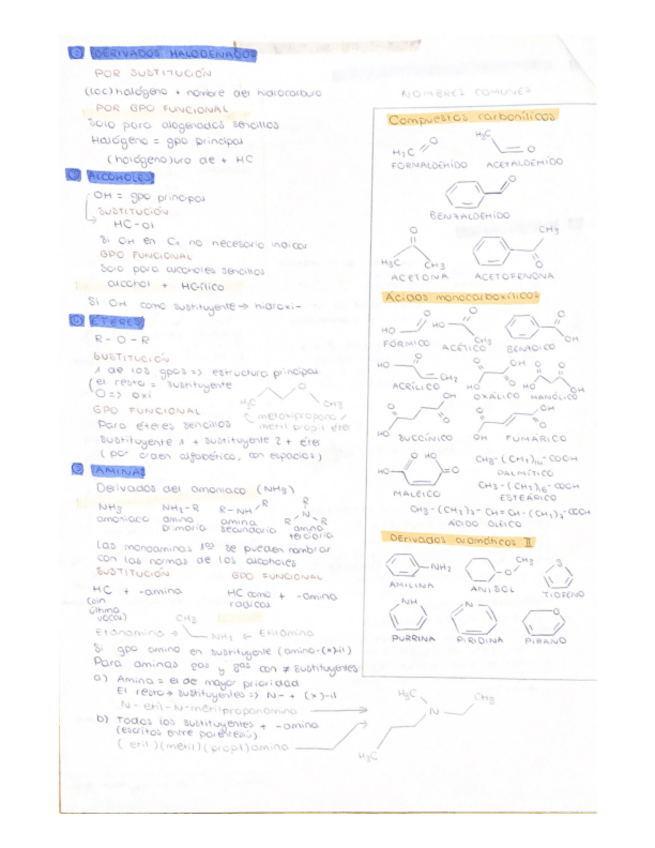 DERIVADOS HALOGENADOS
POR SUSTITUCIÓN
(loc) halógeno + nombre del hidrocarburo
POR GPO FUNCIONAL
Solo para alogenados sencillos
Halógeno = gpo principal
(halógeno)uro de + HC
ALCOHOLES
OH = gpo principal
SUSTITUCIÓN
HC-ol
Si OH en C1 no necesario indicar
GPO FUNCIONAL
Solo para alcoholes sencillos
alcohol + HC-ílico
Si OH como sustituyente → hidroxi-
ÉTERES
R-O-R
SUSTITUCIÓN
1 de los gpos => estructura principal
el resto = sustituyente
O => oxi
H3C O CH3
GPO FUNCIONAL
metoxipropano /
metil propil éter
Para éteres sencillos
Sustituyente 1 + sustituyente 2 + éter
(por orden alfabético, con espacios)
AMINAS
Derivados del amoniaco (NH3)
NH3 NH2-R R-NH-R R-N-R R
amoniaco amina primaria amina secundaria amina terciaria
Las monoaminas 1as se pueden nombrar
con las normas de los alcoholes
SUSTITUCIÓN GPO FUNCIONAL
HC + -amina
(sin última vocal)
HC como radical + -amina
CH3
Etanamina → NH2 ← Etilamina
Si gpo amino en sustituyente (amino-(x)il)
Para aminas 2as y 3as con ≠ sustituyentes
a) Amina = el de mayor prioridad
El resto → sustituyentes => N- + (x)-il
N-etil-N-metilpropanamina
b) Todos los sustituyentes + -amina
(escritos entre paréntesis)
(etil)(metil)(propil)amina
H3C CH3
N
H3C
NOMBRES COMUNES
Compuestos carbonílicos
H2C O H3C O
FORMALDEHÍDO ACETALDEHÍDO
O
BENZALDEHÍDO
O CH3
H3C CH3 O
ACETONA ACETOFENONA
Ácidos monocarboxílicos
HO O HO O CH3 O OH
FÓRMICO ACÉTICO BENZOICO
HO O CH2
ACRÍLICO OXÁLICO MALÓNICO
SUCCÍNICO FUMÁRICO
MALEICO
CH3-(CH2)14-COOH
PALMÍTICO
CH3-(CH2)16-COOH
ESTEÁRICO
CH3-(CH2)7-CH=CH-(CH2)7-COOH
ÁCIDO OLEICO
Derivados aromáticos II
NH2 O CH3 S
ANILINA ANISOL TIOFENO
NH N O
PURRINA PIRIDINA PIRANO